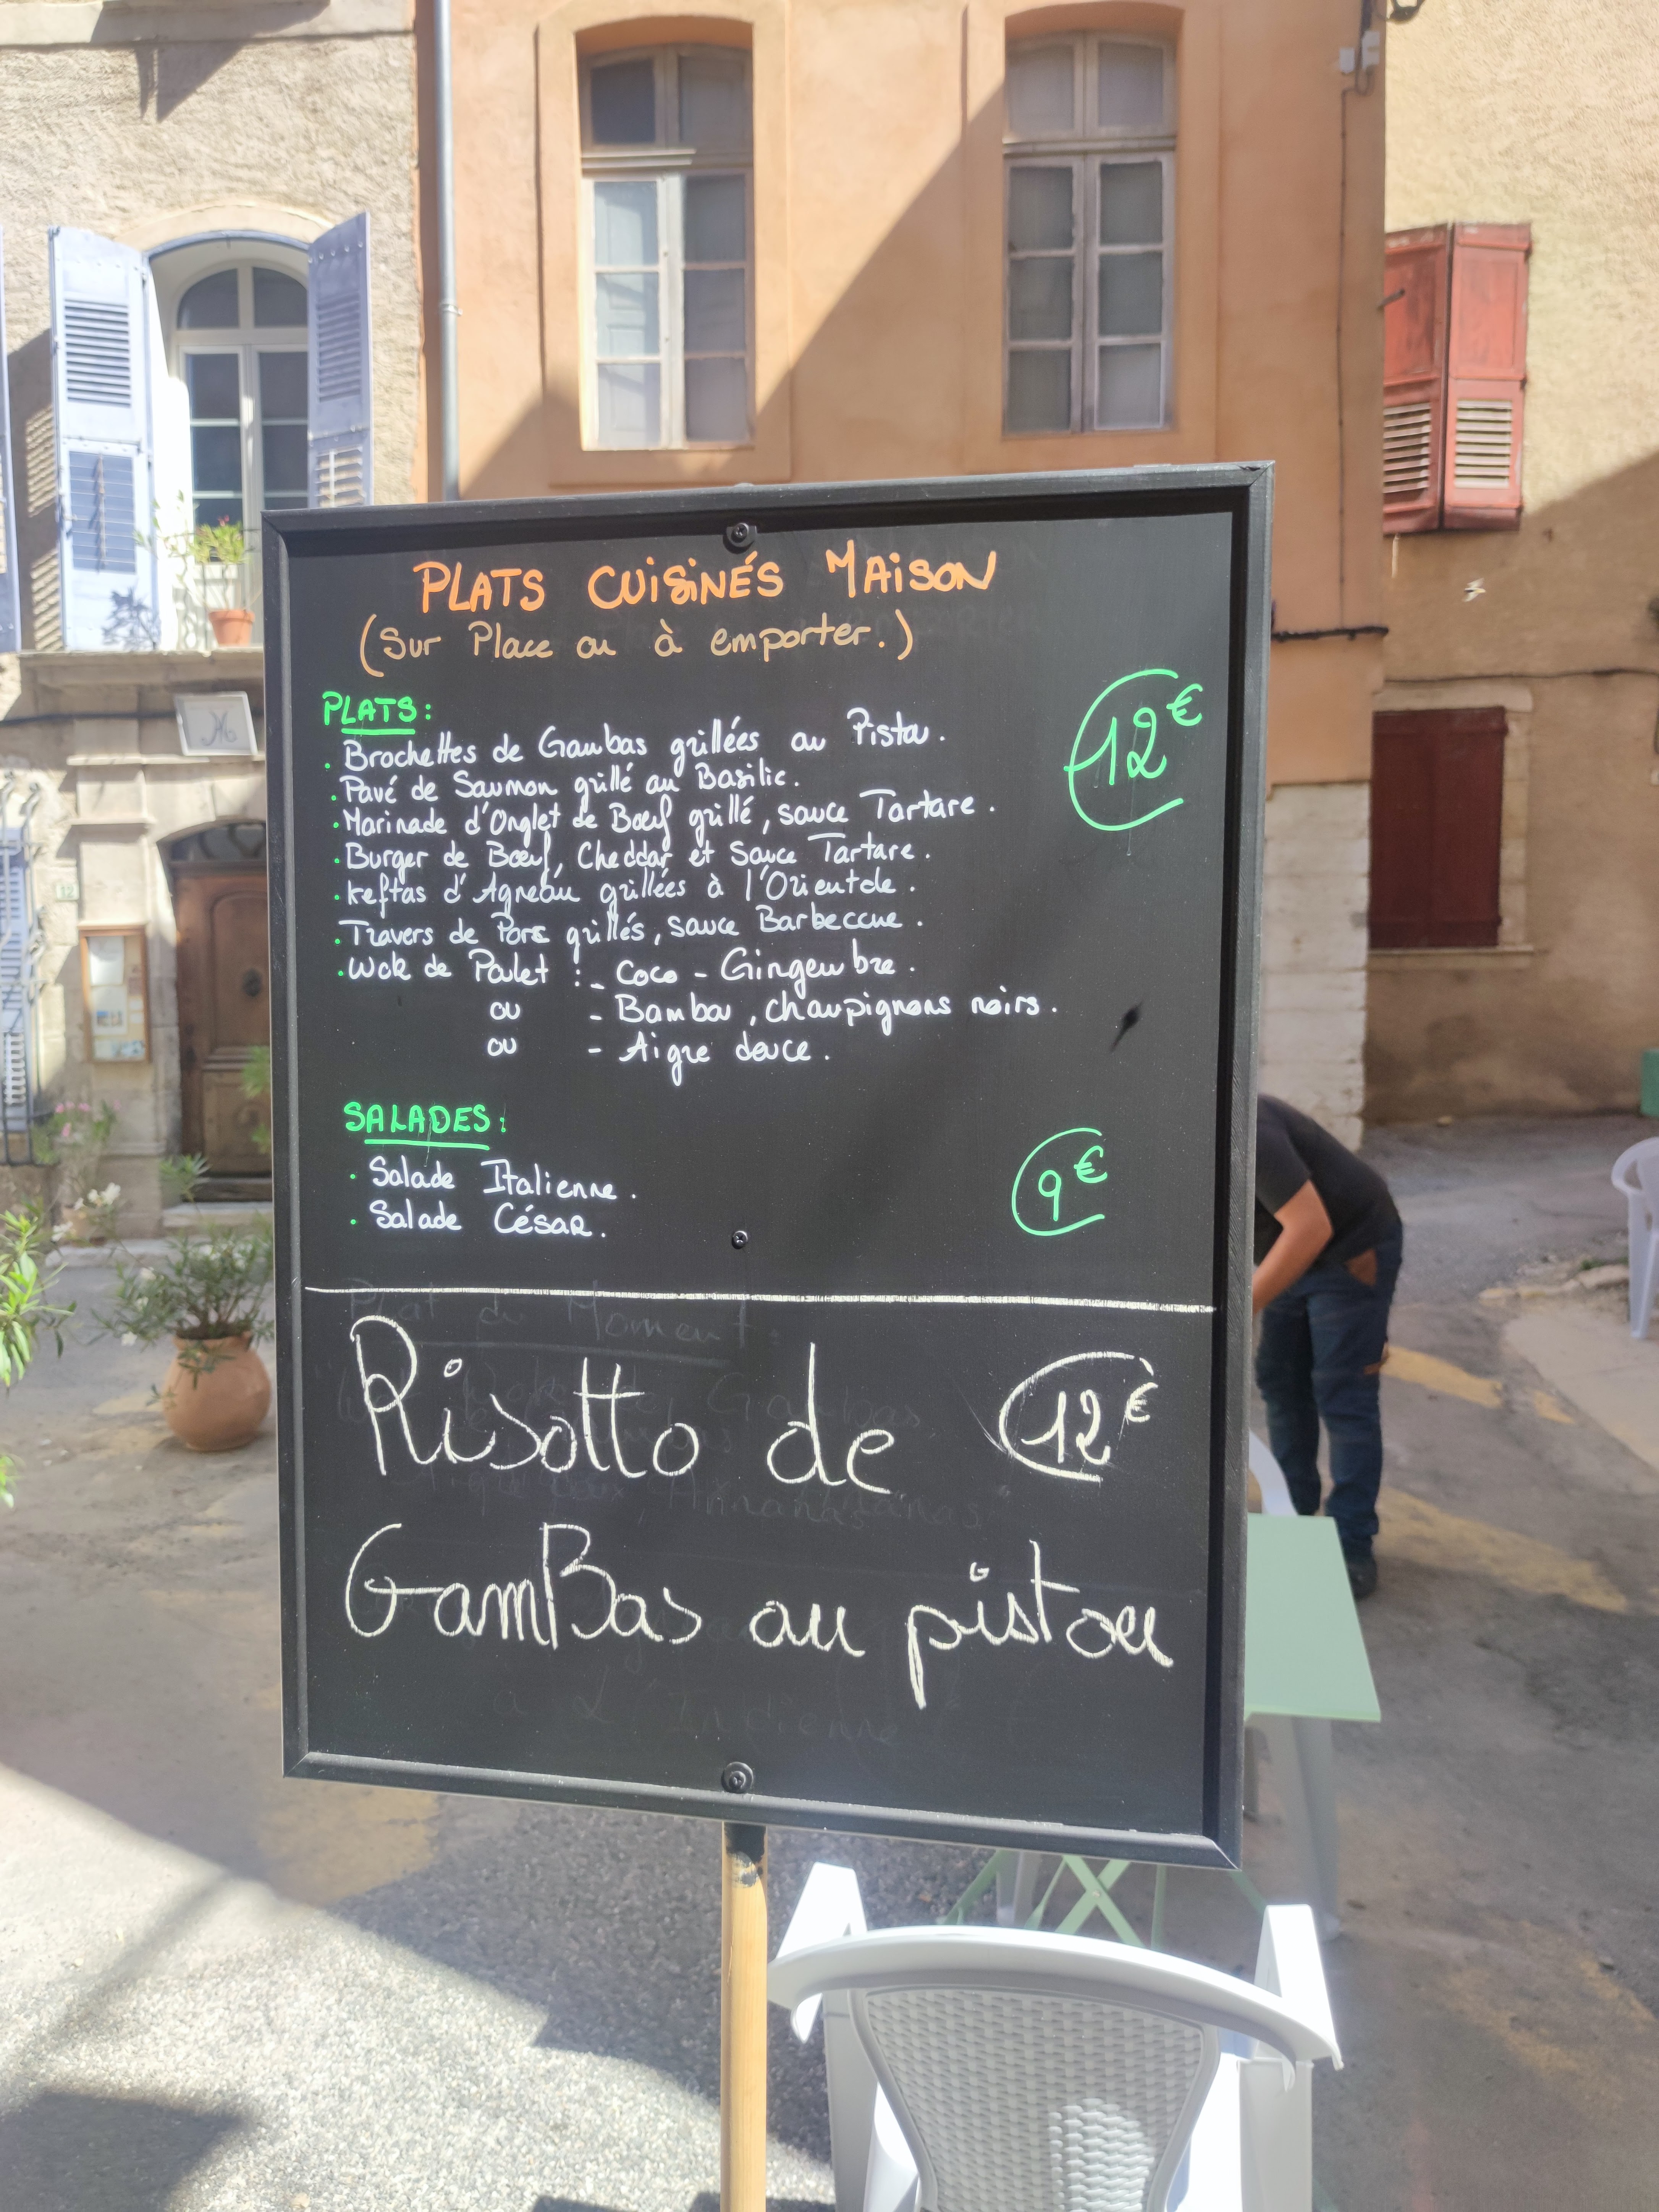 PLATS CUISINÉS MAISON
(Sur Place ou à emporter.)
PLATS:
12€
. Brochettes de Gambas grillées au Pistou.
. Pavé de Saumon grillé au Basilic.
. Marinade d'Onglet de Bœuf grillé, sauce Tartare.
. Burger de Bœuf, Cheddar et Sauce Tartare.
. Keftas d'Agneau grillées à l'Orientale.
. Travers de Porc grillés, sauce Barbecue.
. Wok de Poulet : - Coco - Gingembre.
ou - Bambou, champignons noirs.
ou - Aigre douce.
SALADES:
. Salade Italienne.
9€
. Salade César.
Plat du Moment:
Risotto de 12€
GamBas au pistou
à L'Indienne
12